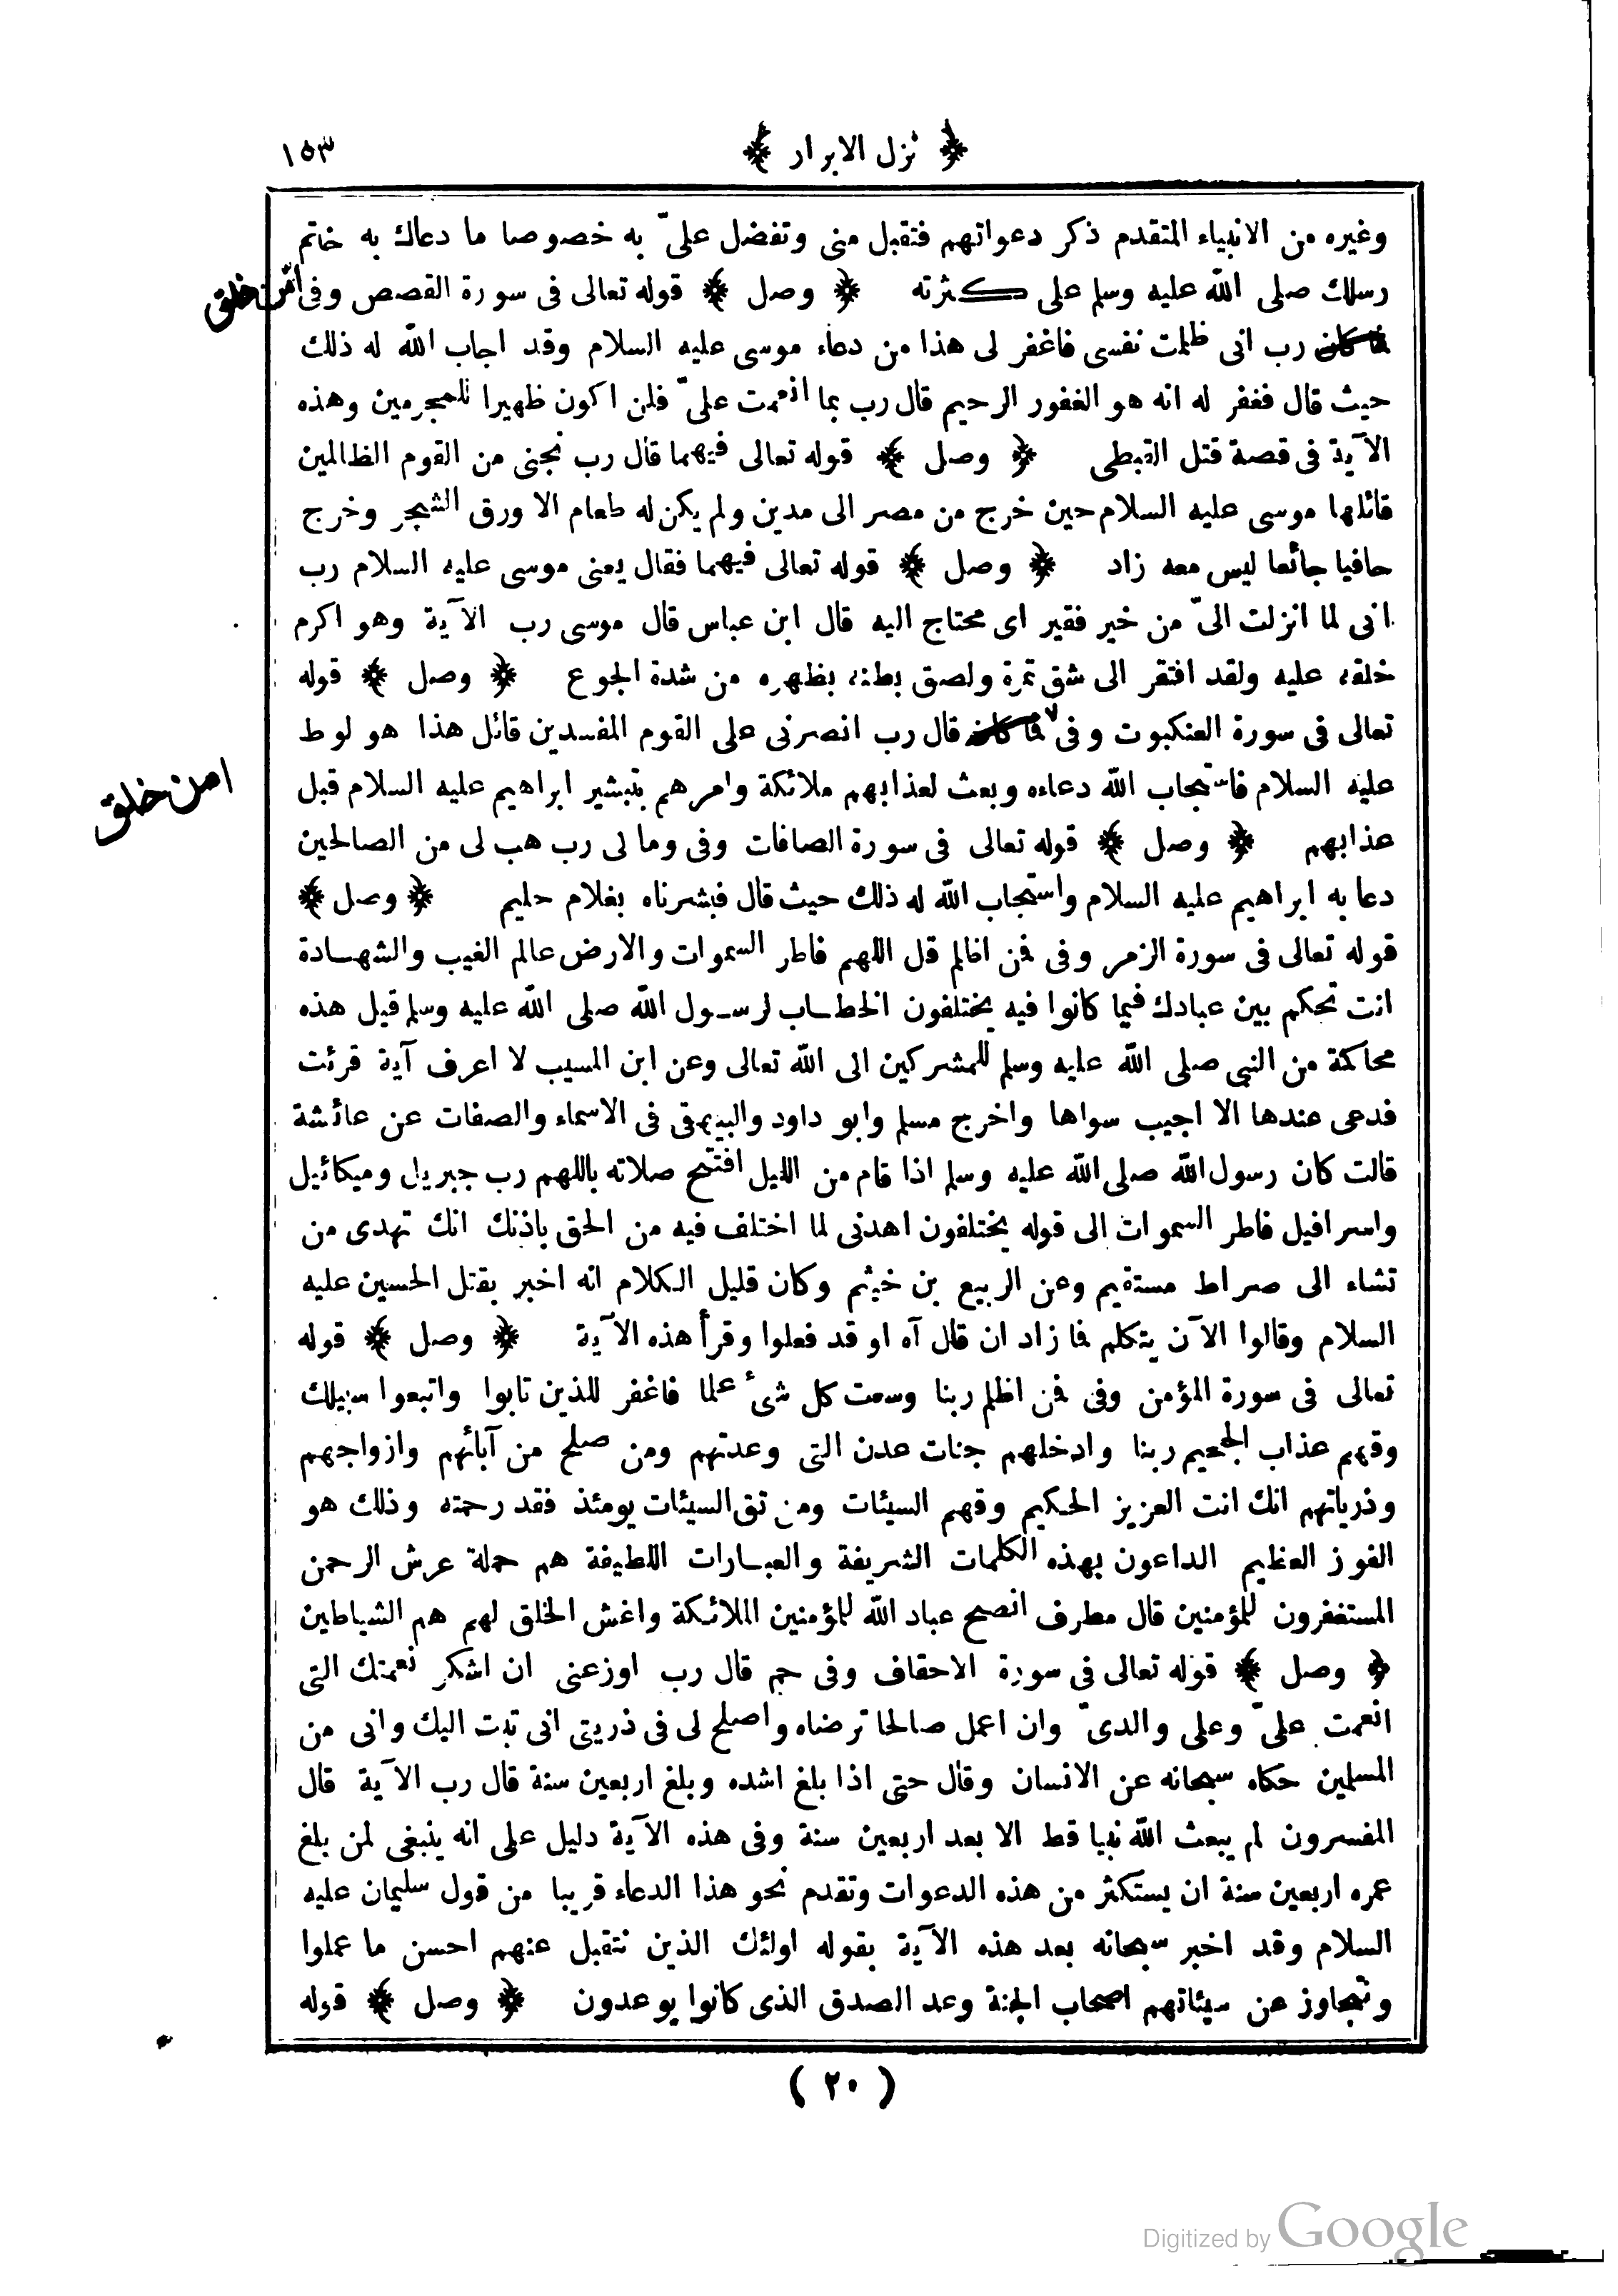 ﴿ نزل الابرار ﴾ ١٥٣
وغيره من الانبياء المتقدم ذكر دعواتهم فتقبل منى وتفضل علىّ به خصوصا ما دعاك به خاتم
رسلك صلى الله عليه وسلم على كثرته ﴿ وصل ﴾ قوله تعالى فى سورة القصص وفى امّن خلق
فما كان رب انى ظلمت نفسى فاغفر لى هذا من دعاء موسى عليه السلام وقد اجاب الله له ذلك
حيث قال فغفر له انه هو الغفور الرحيم قال رب بما انعمت علىّ فلن اكون ظهيرا للمجرمين وهذه
الآية فى قصة قتل القبطى ﴿ وصل ﴾ قوله تعالى فيهما قال رب نجنى من القوم الظالمين
قائلها موسى عليه السلام حين خرج من مصر الى مدين ولم يكن له طعام الا ورق الشجر وخرج
حافيا جائعا ليس معه زاد ﴿ وصل ﴾ قوله تعالى فيهما فقال يعنى موسى عليه السلام رب
انى لما انزلت الىّ من خير فقير اى محتاج اليه قال ابن عباس قال موسى رب الآية وهو اكرم
خلقه عليه ولقد افتقر الى شق تمرة ولصق بطنه بظهره من شدة الجوع ﴿ وصل ﴾ قوله
تعالى فى سورة العنكبوت وفى ٧ فما كان قال رب انصرنى على القوم المفسدين قائل هذا هو لوط
عليه السلام فاستجاب الله دعاءه وبعث لعذابهم ملائكة وامرهم بتبشير ابراهيم عليه السلام قبل
امن خلق
عذابهم ﴿ وصل ﴾ قوله تعالى فى سورة الصافات وفى وما لى رب هب لى من الصالحين
دعا به ابراهيم عليه السلام واستجاب الله له ذلك حيث قال فبشرناه بغلام حليم ﴿ وصل ﴾
قوله تعالى فى سورة الزمر وفى فمن اظلم قل اللهم فاطر السموات والارض عالم الغيب والشهادة
انت تحكم بين عبادك فيما كانوا فيه يختلفون الخطاب لرسول الله صلى الله عليه وسلم قيل هذه
محاكمة من النبى صلى الله عليه وسلم للمشركين الى الله تعالى وعن ابن المسيب لا اعرف آية قرئت
فدعى عندها الا اجيب سواها واخرج مسلم وابو داود والبيهقى فى الاسماء والصفات عن عائشة
قالت كان رسول الله صلى الله عليه وسلم اذا قام من الليل افتتح صلاته باللهم رب جبريل وميكائيل
واسرافيل فاطر السموات الى قوله يختلفون اهدنى لما اختلف فيه من الحق باذنك انك تهدى من
تشاء الى صراط مستقيم وعن الربيع بن خيثم وكان قليل الكلام انه اخبر بقتل الحسين عليه
السلام وقالوا الآن يتكلم فما زاد ان قال آه او قد فعلوا وقرأ هذه الآية ﴿ وصل ﴾ قوله
تعالى فى سورة المؤمن وفى فمن اظلم ربنا وسعت كل شىء علما فاغفر للذين تابوا واتبعوا سبيلك
وقهم عذاب الجحيم ربنا وادخلهم جنات عدن التى وعدتهم ومن صلح من آبائهم وازواجهم
وذرياتهم انك انت العزيز الحكيم وقهم السيئات ومن تق السيئات يومئذ فقد رحمته وذلك هو
الفوز العظيم الداعون بهذه الكلمات الشريفة والعبارات اللطيفة هم حملة عرش الرحمن
المستغفرون للمؤمنين قال مطرف انصح عباد الله للمؤمنين الملائكة واغش الخلق لهم هم الشياطين
﴿ وصل ﴾ قوله تعالى فى سورة الاحقاف وفى حم قال رب اوزعنى ان اشكر نعمتك التى
انعمت علىّ وعلى والدىّ وان اعمل صالحا ترضاه واصلح لى فى ذريتى انى تبت اليك وانى من
المسلمين حكاه سبحانه عن الانسان وقال حتى اذا بلغ اشده وبلغ اربعين سنة قال رب الآية قال
المفسرون لم يبعث الله نبيا قط الا بعد اربعين سنة وفى هذه الآية دليل على انه ينبغى لمن بلغ
عمره اربعين سنة ان يستكثر من هذه الدعوات وتقدم نحو هذا الدعاء قريبا من قول سليمان عليه
السلام وقد اخبر سبحانه بعد هذه الآية بقوله اولئك الذين نتقبل عنهم احسن ما عملوا
ونتجاوز عن سيئاتهم اصحاب الجنة وعد الصدق الذى كانوا يوعدون ﴿ وصل ﴾ قوله
( ٢٠ )
Digitized by Google